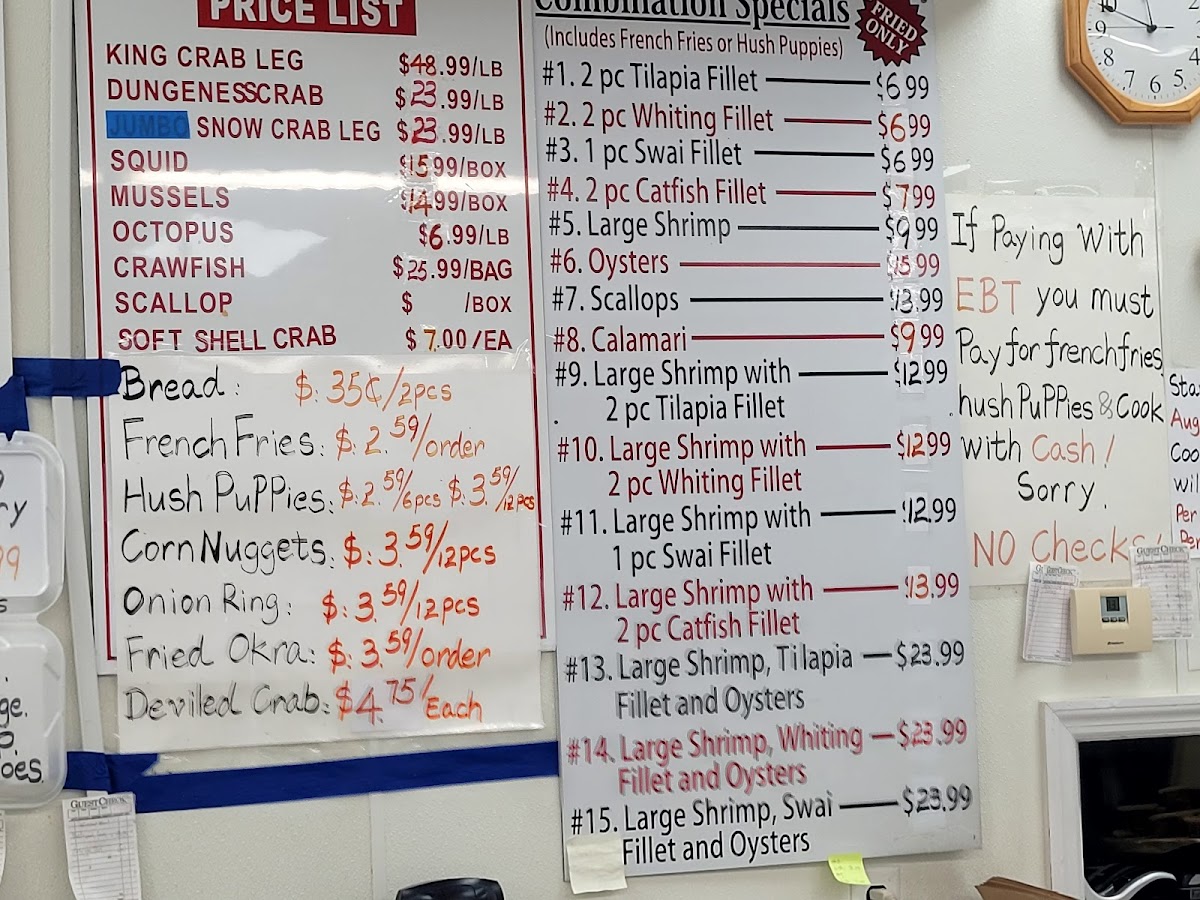 PRICE LIST
KING CRAB LEG $48.99/LB
DUNGENESSCRAB $23.99/LB
JUMBO SNOW CRAB LEG $23.99/LB
SQUID $15.99/BOX
MUSSELS $14.99/BOX
OCTOPUS $6.99/LB
CRAWFISH $25.99/BAG
SCALLOP $ /BOX
SOFT SHELL CRAB $7.00/EA
Bread: $.35¢/2pcs
French Fries: $.2.59/order
Hush PuPPies: $.2.59/6pcs $.3.59/12pcs
Corn Nuggets: $.3.59/12pcs
Onion Ring: $.3.59/12pcs
Fried Okra: $.3.59/order
Deviled Crab: $4.75/Each
Combination Specials
(Includes French Fries or Hush Puppies)
FRIED
ONLY
#1. 2 pc Tilapia Fillet $6.99
#2. 2 pc Whiting Fillet $6.99
#3. 1 pc Swai Fillet $6.99
#4. 2 pc Catfish Fillet $7.99
#5. Large Shrimp $9.99
#6. Oysters $15.99
#7. Scallops $13.99
#8. Calamari $9.99
#9. Large Shrimp with $12.99
2 pc Tilapia Fillet
#10. Large Shrimp with $12.99
2 pc Whiting Fillet
#11. Large Shrimp with $12.99
1 pc Swai Fillet
#12. Large Shrimp with $13.99
2 pc Catfish Fillet
#13. Large Shrimp, Tilapia $23.99
Fillet and Oysters
#14. Large Shrimp, Whiting $23.99
Fillet and Oysters
#15. Large Shrimp, Swai $23.99
Fillet and Oysters
If Paying With
EBT you must
Pay for frenchfries
hush PuPPies & Cook
with Cash!
Sorry.
NO Checks!
Sta
Aug
Coo
wil
Per
Per
10
9
8
7
6
5
2
3
4
ry
99
s
ge.
P.
oes.
GUEST CHECK
GUEST CHECK
GUEST CHECK